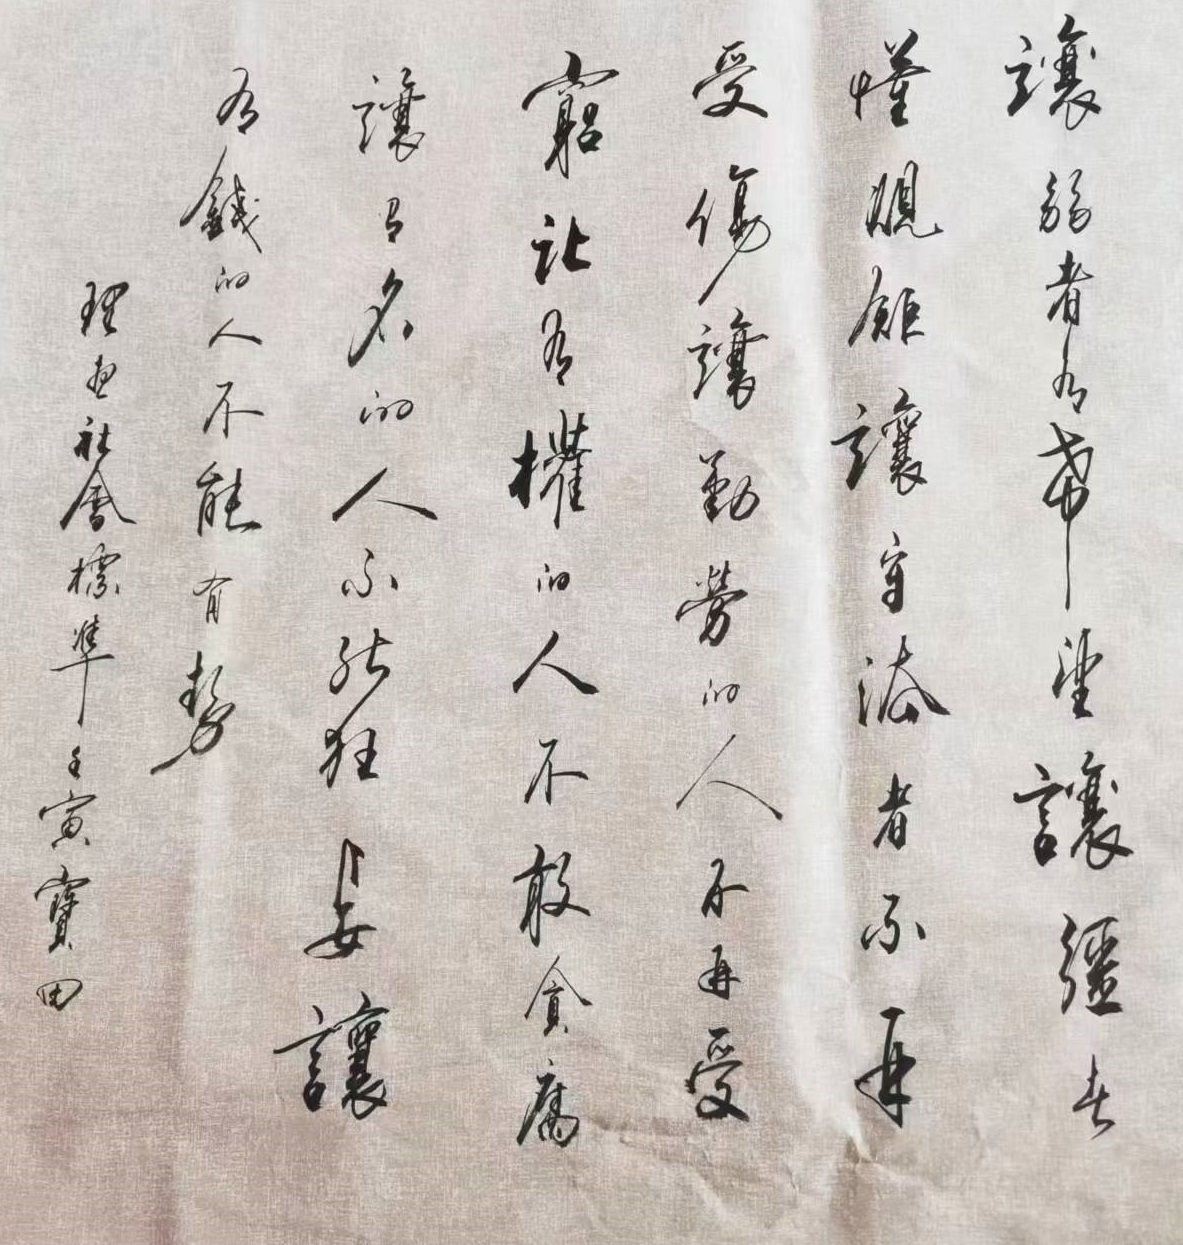 讓弱者有希望讓强者
懂規矩讓守法者不再
受傷讓勤勞的人不再受
窮让有權的人不敢貪腐
讓有名的人不能狂妄讓
有錢的人不能有勢
理想社會標準壬寅寶田